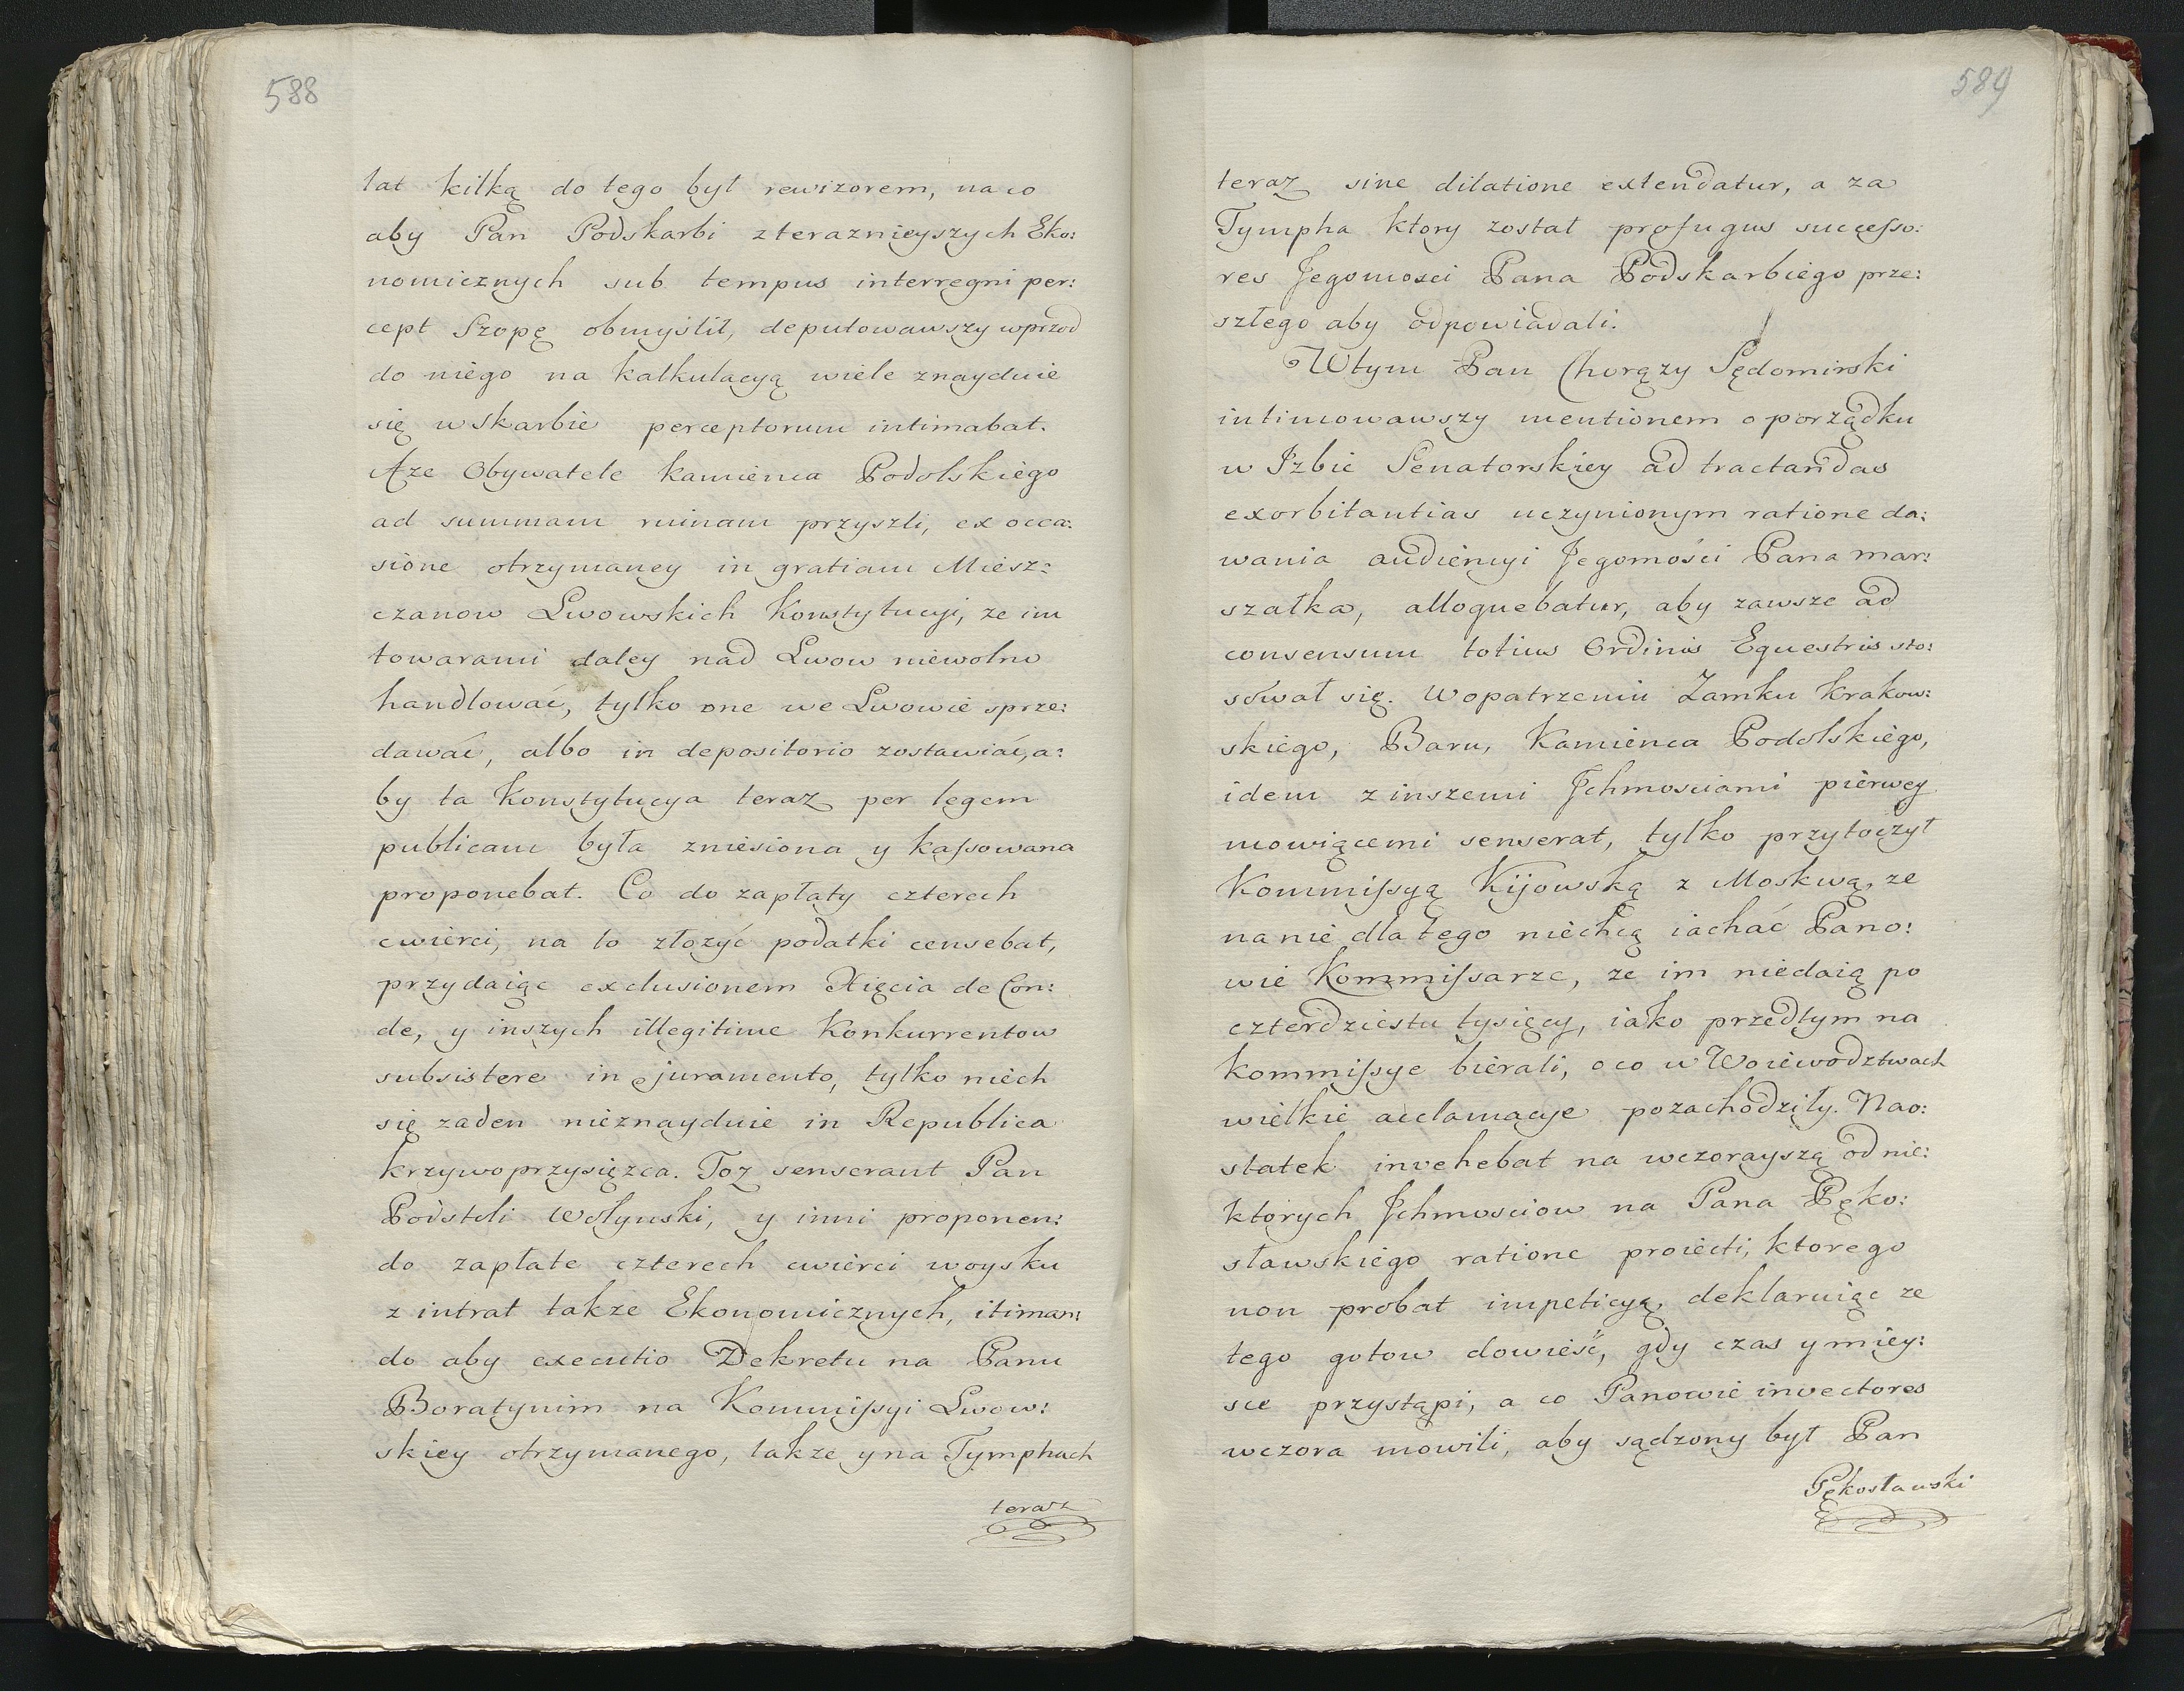 588
lat kilką do tego był rewizorem, na co
aby Pan Podskarbi z teraznieyszych Eko:
nomicznych sub tempus interregni per:
cept Szopę obmyślił, deputowawszy wprzod
do niego na kalkulacyą wiele znayduie
się w skarbie perceptorum intimabat.
Aze Obywatele kamienca Podolskiego
ad summam ruinam przyszli, ex occa:
sione otrzymaney in gratiam Miesz:
czanow Lwowskich Konstytucyi, ze im
towarami daley nad Lwow niewolno
handlować, tylko one we Lwowie sprze:
dawać, albo in depositorio zostawiać, a:
by ta Konstytucya teraz per legem
publicam była zniesiona y kassowana
proponebat. Co do zapłaty czterech
cwierci, na to złożyć podatki censebat,
przydaiąc exclusionem Xięcia de Con:
de, y inszych illegitime Konkurrentow
subsistere in juramento, tylko niech
się zaden nieznayduie in Republica
krzywoprzysięzca. Toz senserant Pan
Podstoli Wołynski, y inni proponen:
do zapłate czterech cwierci woysku
z intrat takze Ekonomicznych, itiman:
do aby executio Dekretu na Panu
Boratynim na Kommissyi Lwow:
skiey otrzymanego, takze y na Tymphach
teraz
589
teraz sine dilatione extendatur, a za
Tympha ktory został profugus successo:
res Jegomosci Pana Podskarbiego prze:
szłego aby odpowiadali.
Wtym Pan Chorązy Sędomirski
intimowawszy mentionem o porządku
w Izbie Senatorskiey ad tractandas
exorbitantias uczynionym ratione da:
wania audiencyi Jegomości Pana mar:
szałka, alloquebatur, aby zawsze ad
consensum totius Ordinis Equestris sto:
sował się. W opatrzeniu Zamku Krakow:
skiego, Baru, Kamienca Podolskiego,
idem z inszemi Jchmosciami pierwey
mowiącemi senserat, tylko przytoczył
Kommissyą Kijowską z Moskwą, ze
na nie dla tego niechcą iachać Pano:
wie Kommissarze, ze im niedaią po
czterdziestu tysięcy, iako przedtym na
kommissye bierali, o co w Woiewodztwach
wielkie acclamacye pozachodziły. Nao:
statek invehebat na wczorayszą od nie:
których Jchmosciow na Pana Pęko:
sławskiego ratione proiecti, ktorego
non probat impeticyą, deklaruiąc ze
tego gotow dowieść, gdy czas y miey:
sce przystąpi, a co Panowie invectores
wczora mowili, aby sądzony był Pan
Pękosławski